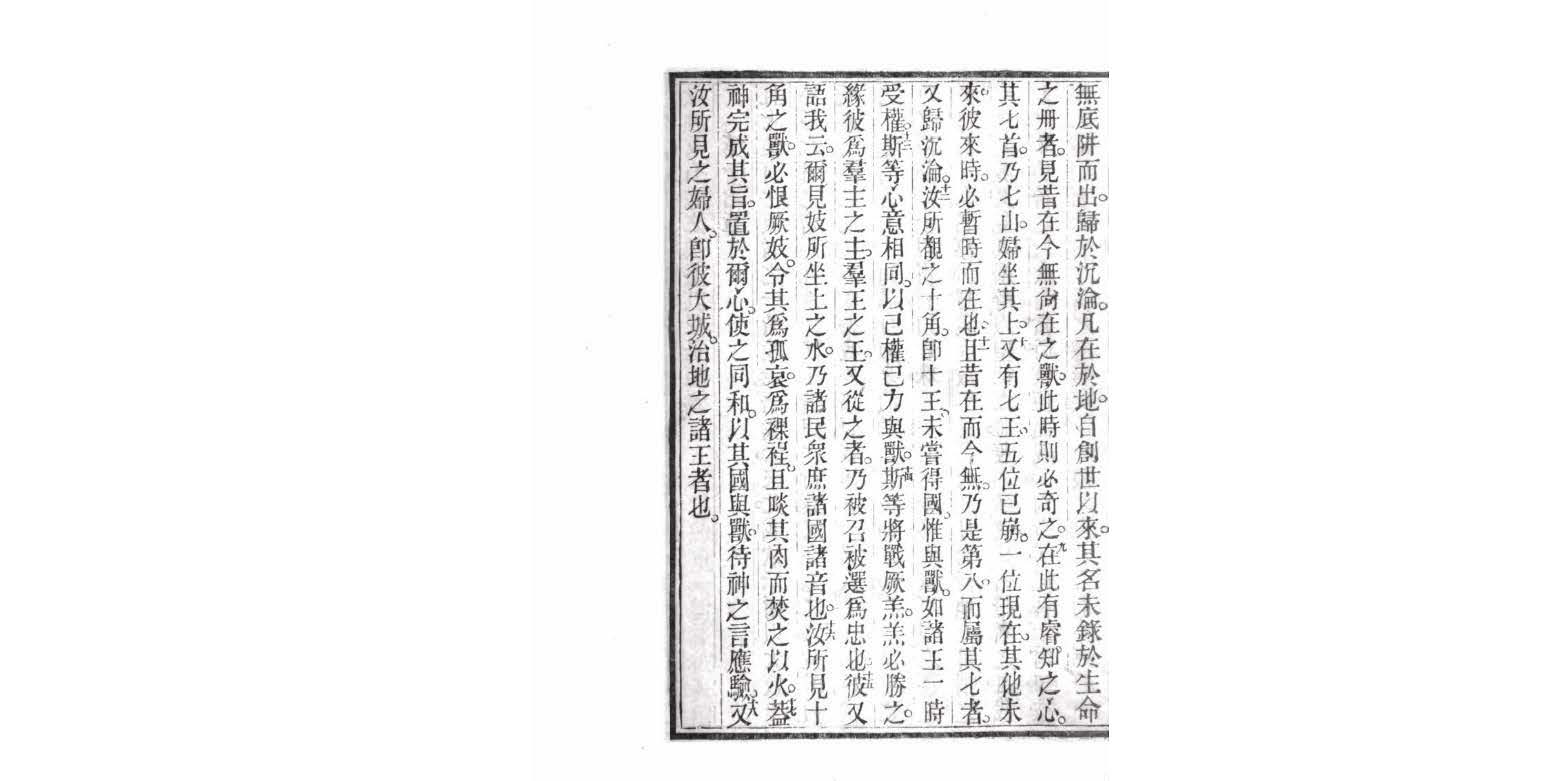 無底阱而出。歸於沉淪。凡在於地。自創世以來。其名未錄於生命
之冊者。見昔在今無尙在之獸。此時則必奇之。九在此有睿知之心。
其七首。乃七山。婦坐其上。十又有七王。五位已崩。一位現在。其他未
來。彼來時。必暫時而在也。十一且昔在而今無。乃是第八。而屬其七者。
又歸沉淪。十二汝所覩之十角。卽十王、未嘗得國。惟與獸。如諸王一時
受權。十三斯等心意相同。以己權己力與獸。十四斯等將戰厥羔。羔必勝之。
緣彼爲羣主之主。羣王之王。又從之者。乃被召被選爲忠也。十五彼又
語我云。爾見妓所坐上之水。乃諸民衆庶諸國諸音也。十六汝所見十
角之獸。必恨厥妓。令其爲孤哀。爲裸裎。且啖其肉而焚之以火。十七蓋
神完成其旨。置於爾心。使之同和。以其國與獸。待神之言應驗。十八又
汝所見之婦人。卽彼大城。治地之諸王者也。